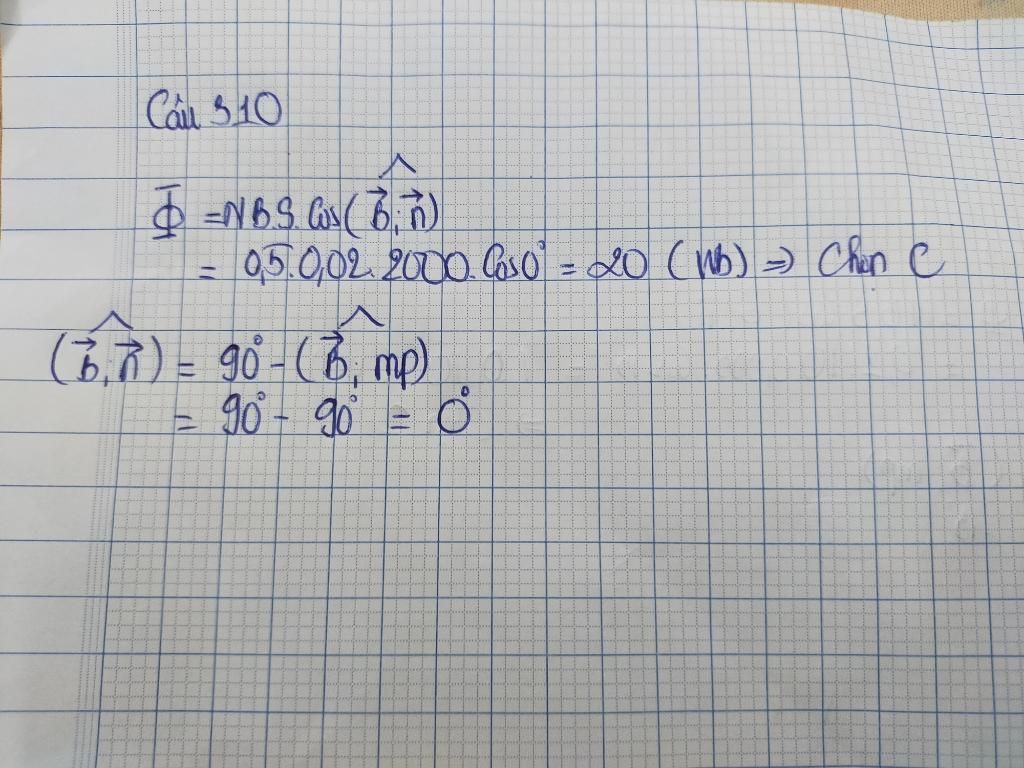 Câu 310
Φ = N.B.S.Cos(B⃗; n⃗)
= 0,5.0,02.2000.Cos0° = 20 (Wb) ⇒ Chọn C
(B⃗; n⃗) = 90° - (B⃗; mp)
= 90° - 90° = 0°